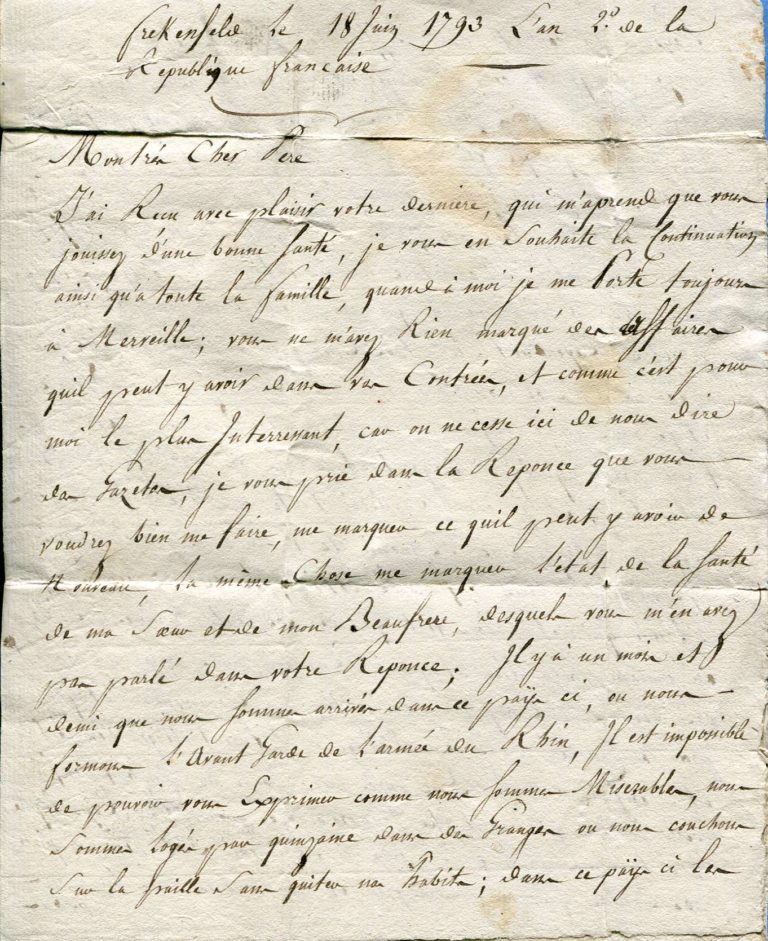 frekenfeld le 18 Juin 1793 L'an 2.d de la
République francaise
Mon trés Cher Pere
J'ai Recu avec plaisir votre derniere, qui m'aprend que vous
jouissez d'une bonne santé, je vous en souhaite la Continuation
ainsi qu'a toute la famille, quand à moi je me Porte toujours
à Merveille; vous ne m'avez Rien marqué des affaires
quil peut y avoir dans vos Contrées, et comme c'est pour
moi le plus Interressant, car on ne cesse ici de nous dire
des Gazetes, je vous prie dans la Reponce que vous
voudrez bien me faire, me marquer ce quil peut y avoir de
Nouveau, la même Chose me marquer l'état de la santé
de ma Sœur et de mon Beaufrere, desquels vous m'en avez
pas parlé dans votre Reponce; Il y à un mois et
demi que nous sommes arrivés dans ce païs ci, ou nous
formons l'Avant Garde de l'armée du Rhin, Il est imposible
de pouvoir vous Exprimer comme nous sommes Miserables, nous
sommes logés par quinzaine dans des Granges ou nous couchons
sur la paille sans quiter nos habits; dans ce païs ci les